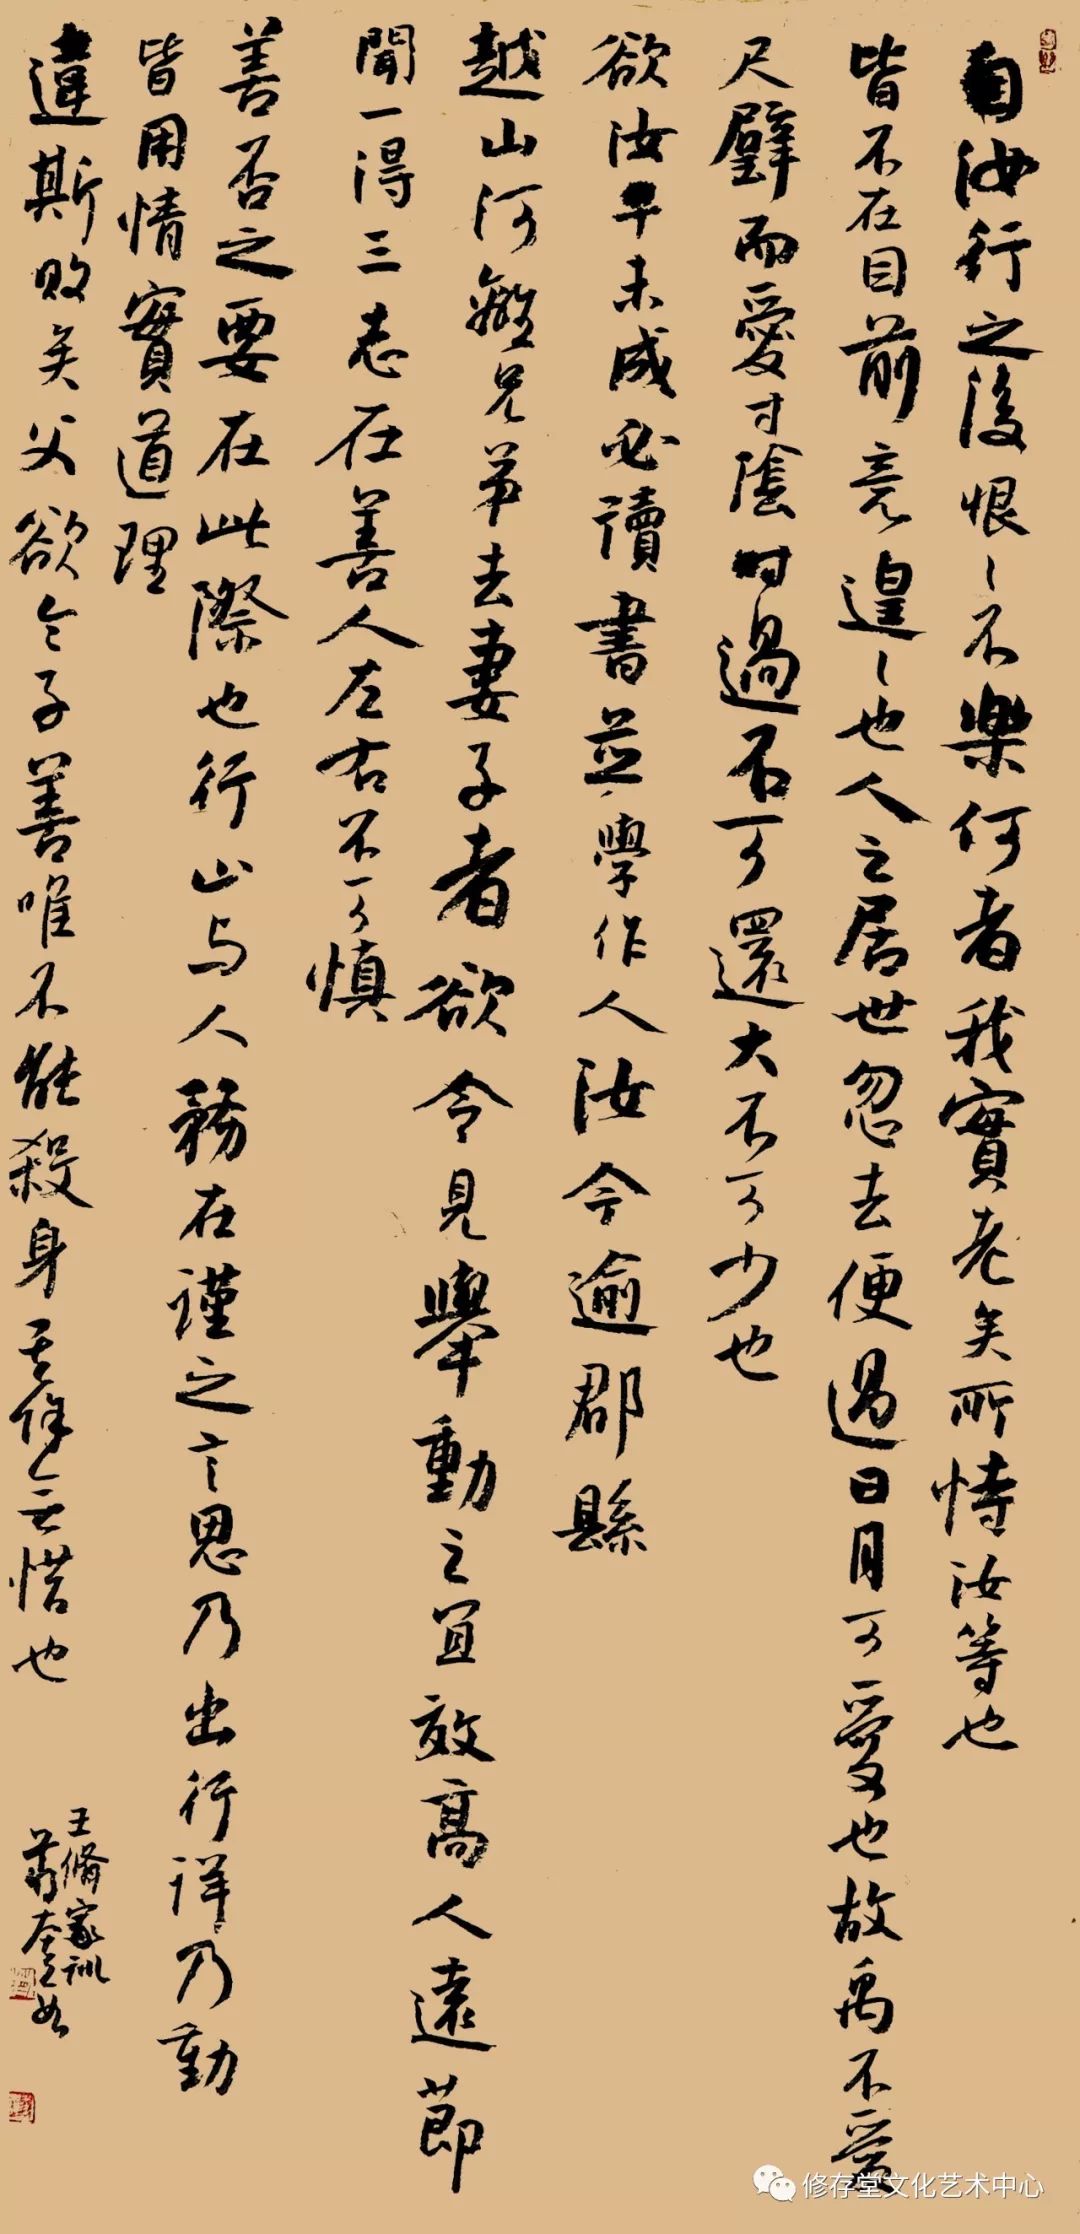 自汝行之後恨〻不樂何者我實老矣所恃汝等也
皆不在目前意遑〻也人之居世忽去便過日月可愛也故禹不愛
尺璧而愛寸陰時過不可還大不可少也
欲汝早未成必讀書並學作人汝今逾郡縣
越山河離兄弟去妻子者欲令見舉動之宜效高人遠節
聞一得三志在善人左右不可慎
善否之要在此際也行止与人務在謹之言思乃出行詳乃動
皆用情實道理
違斯敗矣父欲令子善唯不能殺身其餘無惜也
王脩家訓
修存堂文化艺术中心